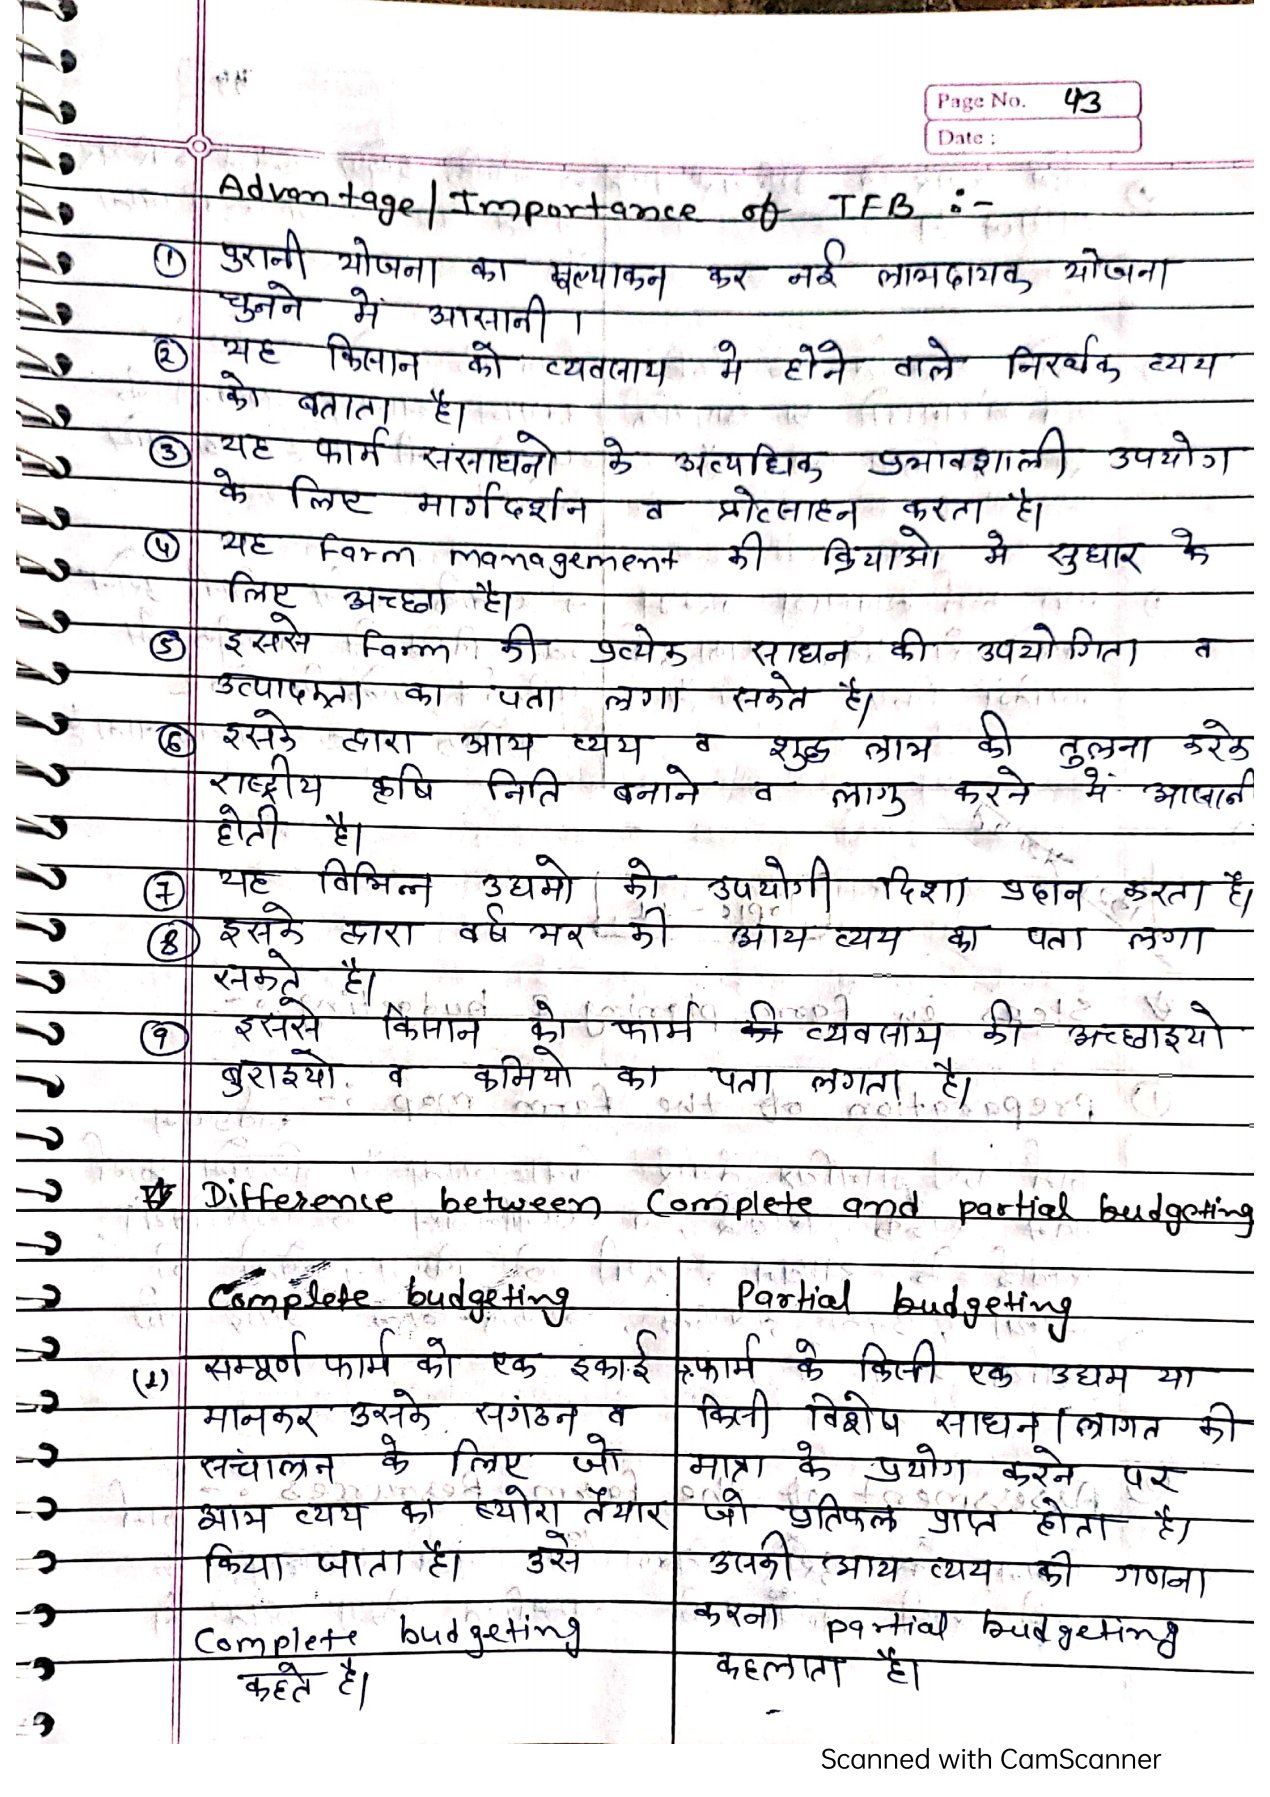 Page No. 43
Date :
Advantage/Importance of TFB :-
① पुरानी योजना का मूल्याकन कर नई लाभदायक योजना
चुनने में आसानी ।
② यह किसान को व्यवसाय मे होने वाले निरर्थक व्यय
को बताता है।
③ यह फार्म संसाधनो के अत्याधिक प्रभावशाली उपयोग
के लिए मार्गदर्शन व प्रोत्साहन करता है।
④ यह Farm management की क्रियाओ मे सुधार के
लिए अच्छा है।
⑤ इससे Farm की प्रत्येक साधन की उपयोगिता व
उत्पादकता का पता लगा सकते है।
⑥ इसके द्वारा आय व्यय व शुद्ध लाभ की तुलना करके
राष्ट्रीय कृषि निति बनाने व लागु करने में आसानी
होती है।
⑦ यह विभिन्न उद्यमो को उपयोगी दिशा प्रदान करता है।
⑧ इसके द्वारा वर्ष भर की आय व्यय का पता लगा
सकते है।
⑨ इससे किसान को फार्म की व्यवसाय की अच्छाइयो
बुराइयो व कमियो का पता लगता है।
Difference between Complete and partial budgeting
Complete budgeting Partial budgeting
(1) सम्पूर्ण फार्म को एक इकाई फार्म के किसी एक उद्यम या
मानकर उसके सगंठन व किसी विशेष साधन/लागत की
संचालन के लिए जो मात्रा के प्रयोग करने पर
आय व्यय का ब्योरा तैयार जो प्रतिफल प्राप्त होता है।
किया जाता है। उसे उसकी आय व्यय की गणना
Complete budgeting करना partial budgeting
कहते है। कहलाता है।
Scanned with CamScanner